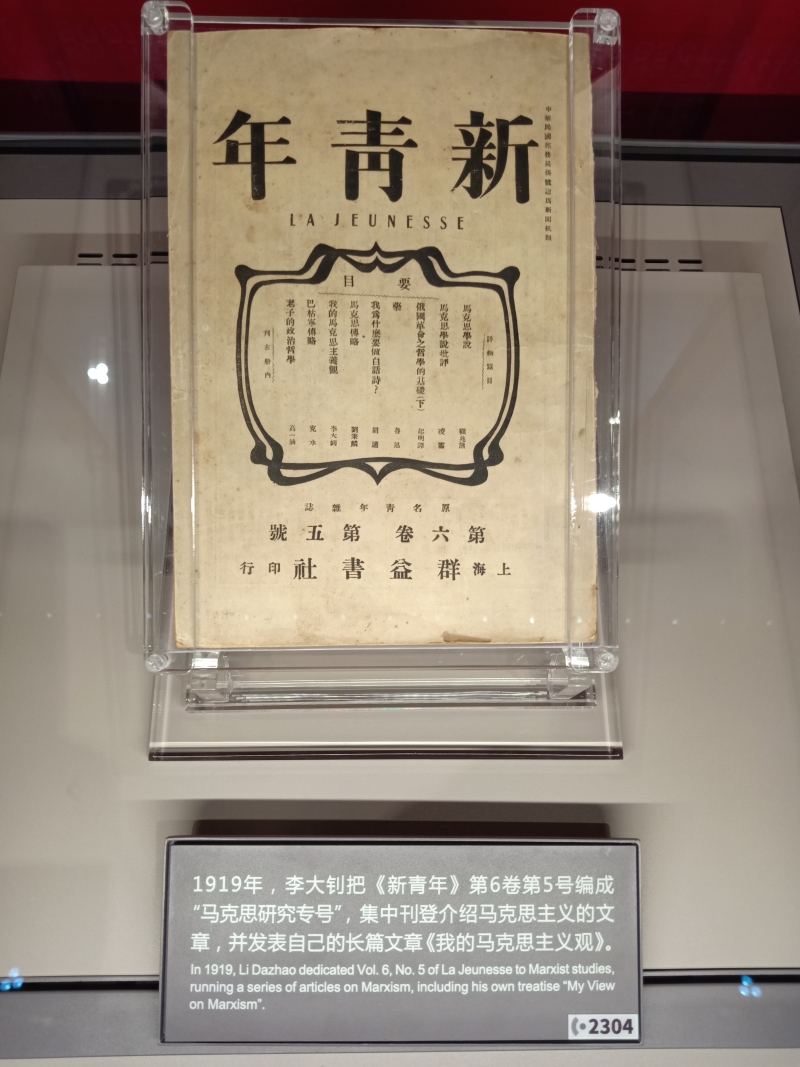 新青年
LA JEUNESSE
要目
詳細題目
馬克思學說 顧兆熊
馬克思學說批評 凌霜
俄國革命之哲學的基礎(下) 起明譯
藥 魯迅
我爲什麼要做白話詩? 胡適
馬克思傳略 劉秉麟
我的馬克思主義觀 李大釗
巴枯寧傳略 克水
老子的政治哲學 高一涵
列在册內
原名青年雜誌
第六卷 第五號
上海群益書社印行
1919年，李大钊把《新青年》第6卷第5号编成
“马克思研究专号”，集中刊登介绍马克思主义的文
章，并发表自己的长篇文章《我的马克思主义观》。
In 1919, Li Dazhao dedicated Vol. 6, No. 5 of La Jeunesse to Marxist studies,
running a series of articles on Marxism, including his own treatise “My View
on Marxism”.
2304